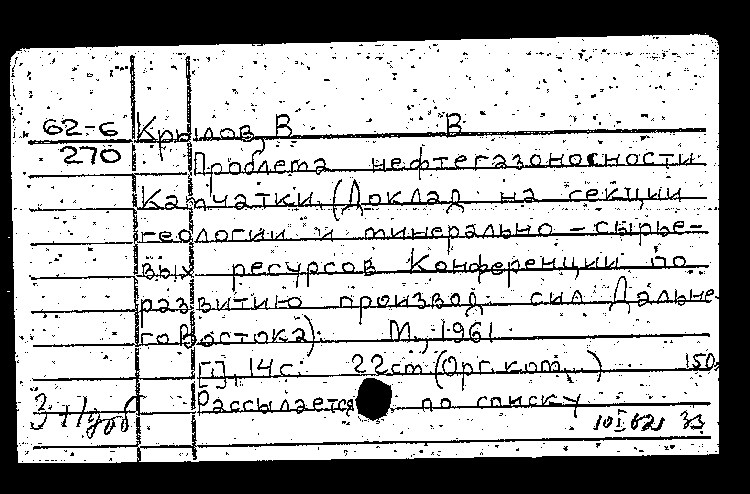 62-6 Крылов, В В
270 Проблема нефтегазоносности
Камчатки. (Доклад на секции
геологии и минерально-сырье-
вых ресурсов Конференции по
развитию производ. сил Дальне
го Востока). М., 1961.
[1], 14 с. 22 см (Орг. ком...) 150
Рассылается по списку
3+1 дуб
10 I 62г ЗЗ